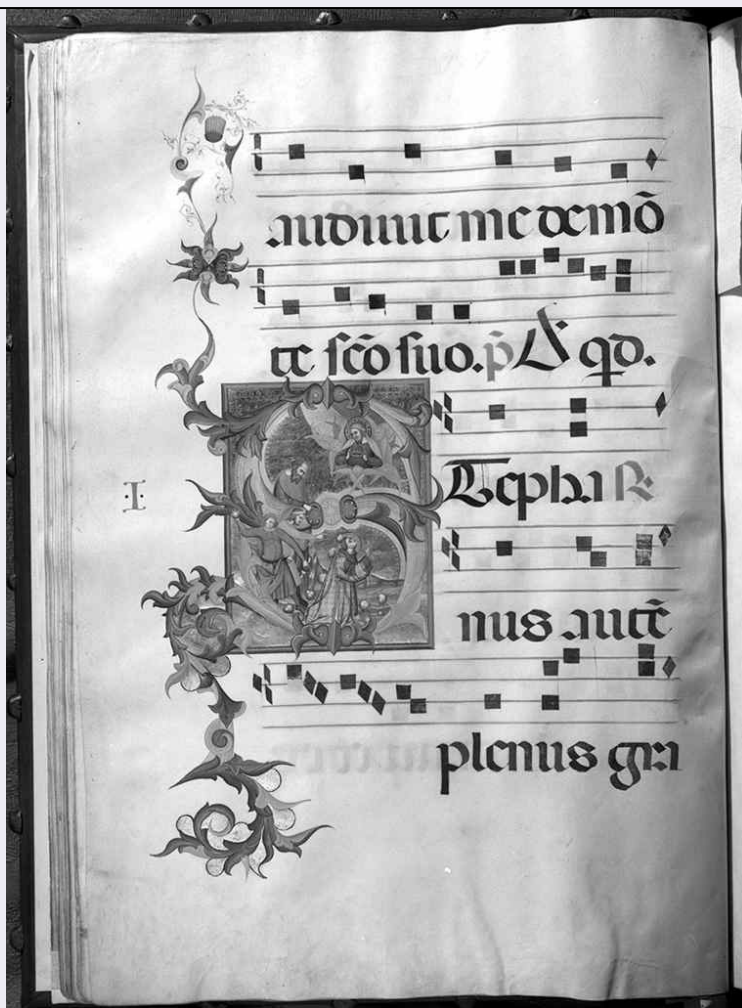 audiuit me de mõ
te scõ suo. p̄ A qd.
STepha R
·I·
nus autē
plenus gra